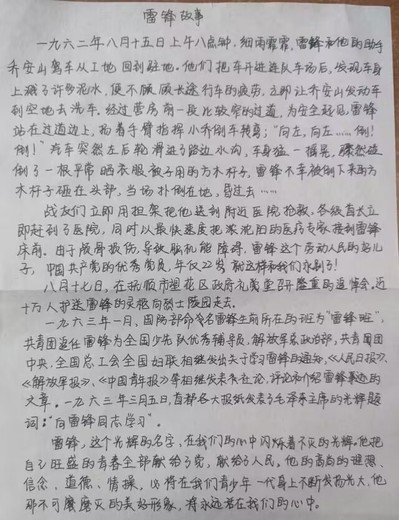 雷锋故事
一九六二年八月十五日上午八点钟,细雨霏霏,雷锋和他的助手
乔安山驾车从工地回到驻地。他们把车开进连队车场后,发现车身
上溅了许多泥水,便不顾长途行车的疲劳,立即让乔安山发动车
到空地去洗车。经过营房前一段比较窄的过道,为安全起见雷锋
站在过道边上,扬着手臂指挥小乔倒车转弯:“向左,向左……倒!
倒!”汽车突然左后轮滑进了路边水沟,车身猛一摇晃,骤然碰
倒了一根平常晒衣服被子用的方木杆子。雷锋不幸被倒下来的方
木杆子砸在头部,当场扑倒在地,昏过去……
战友们立即用担架把他送到附近医院抢救,各级首长立
即赶到了医院,同时以最快速度把沈阳的医疗专家接到雷锋
床前。由于颅骨损伤,导致脑机能障碍,雷锋这个劳动人民的好儿
子,中国共产党的优秀党员,年仅22岁就这样和我们永别了!
八月十七日,在抚顺市望花区政府礼堂召开隆重的追悼会。近
十万人护送雷锋的灵柩向烈士陵园走去。
一九六三年一月,国防部命名雷锋生前所在的班为“雷锋班”,
共青团追任雷锋为全国少先队优秀辅导员,解放军总政治部,共青团
中央,全国总工会全国妇联相继发出关于学习雷锋的通知,《人民日报》、
《解放军报》、《中国青年报》等相继发表了社论,评论和介绍雷锋事迹的
文章。一九六三年三月五日,首都各大报纸发表了毛泽东主席的光辉题
词:“向雷锋同志学习”。
雷锋,这个光辉的名字,在我们的心中闪烁着不灭的光辉。他把
自己旺盛的青春全部献给了党,献给了人民。他的高尚的理想、
信念、道德、情操,必将在我们青少年一代身上不断发扬光大,他
那不可磨灭的美好形象,将永远活在我们的心中。